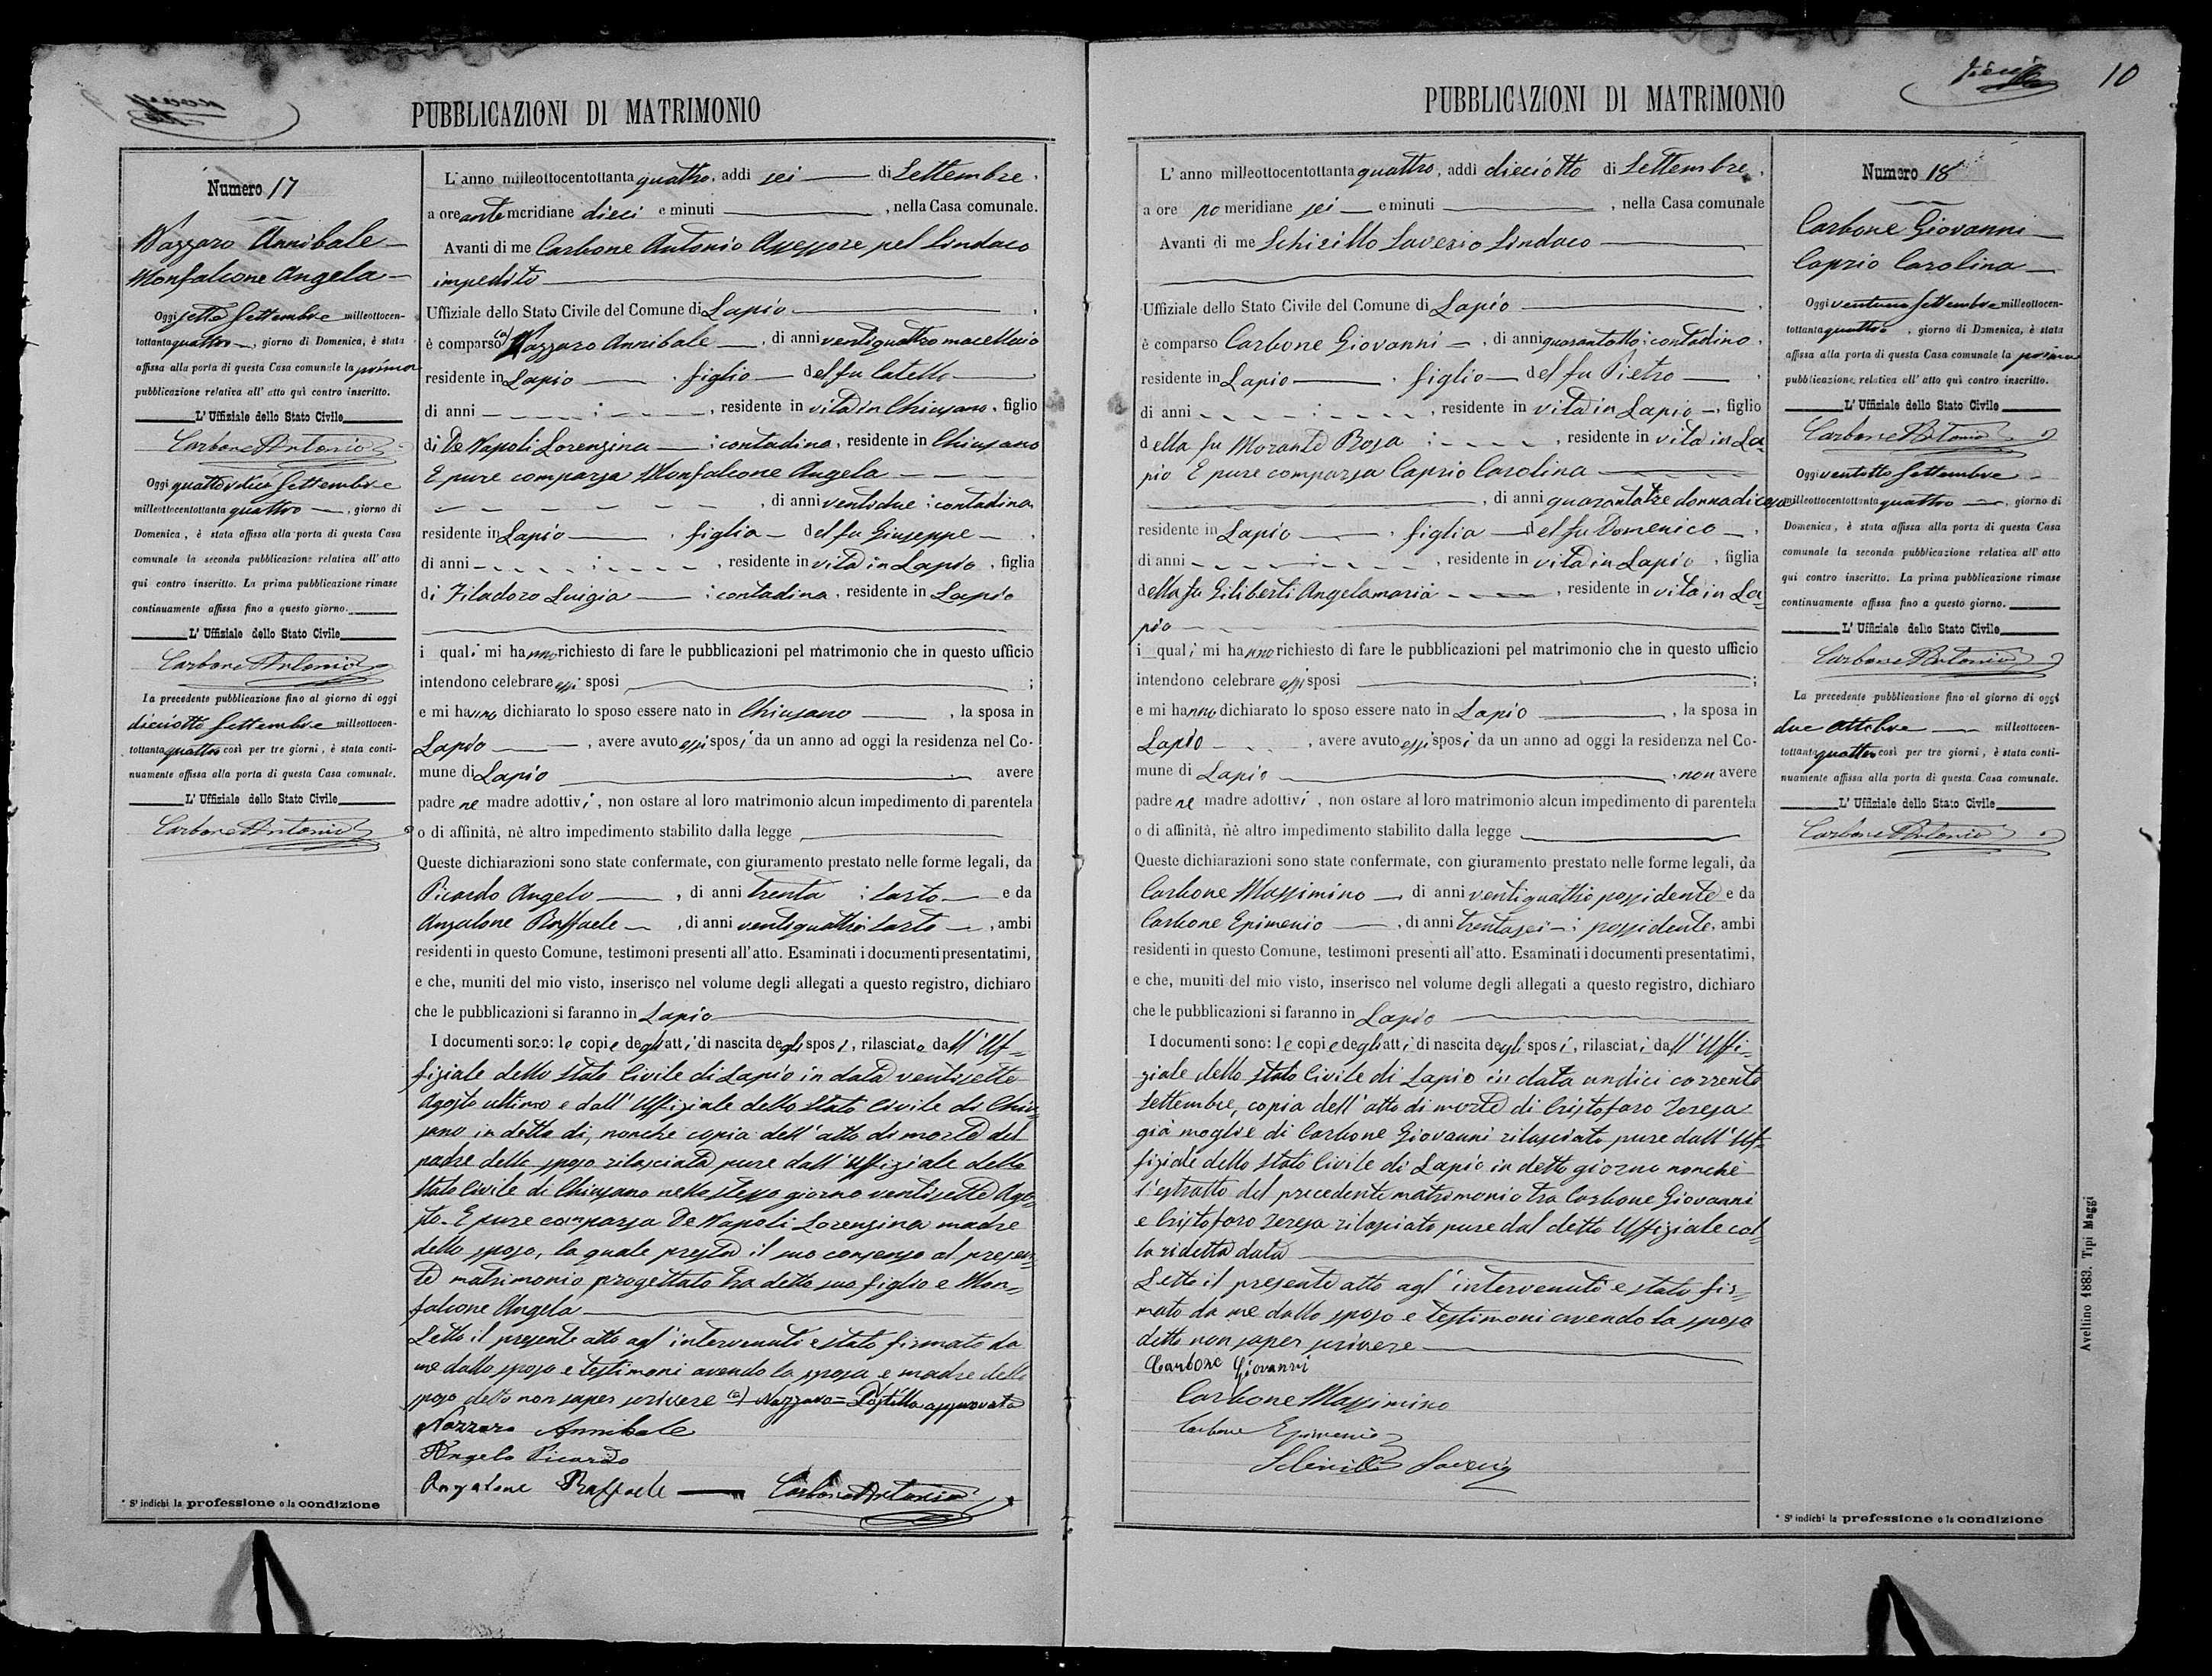 PUBBLICAZIONI DI MATRIMONIO
Numero 17
Nazzaro Annibale
Monfalcone Angela
Oggi sette Settembre milleottocen-
tottantaquattro, giorno di Domenica, è stata
affissa alla porta di questa Casa comunale la prima
pubblicazione relativa all' atto quì contro inscritto.
L' Uffiziale dello Stato Civile
Carbone Antonio
Oggi quattordici Settembre
milleottocentottanta quattro, giorno di
Domenica, è stata affissa alla porta di questa Casa
comunale la seconda pubblicazione relativa all' atto
qui contro inscritto. La prima pubblicazione rimase
continuamente affissa fino a questo giorno.
L' Uffiziale dello Stato Civile
Carbone Antonio
La precedente pubblicazione fino al giorno di oggi
dieciotto Settembre milleottocen-
tottantaquattro così per tre giorni, è stata conti-
nuamente affissa alla porta di questa Casa comunale.
L' Uffiziale dello Stato Civile
Carbone Antonio
* S' indichi la professione o la condizione
L' anno milleottocentottanta quattro, addi sei di Settembre,
a ore antemeridiane dieci e minuti , nella Casa comunale.
Avanti di me Carbone Antonio Assessore pel Sindaco
impedito
Uffiziale dello Stato Civile del Comune di Lapio
è comparso (a) Nazzaro Annibale, di anni ventiquattro macellaio
residente in Lapio, figlio del fu Catello
di anni , residente in vita in Chiusano, figlio
di De Napoli Lorenzina : contadina, residente in Chiusano
E pure comparsa Monfalcone Angela
, di anni ventidue : contadina
residente in Lapio, figlia del fu Giuseppe
di anni , residente in vita in Lapio, figlia
di Filadoro Luigia : contadina, residente in Lapio
i quali mi hanno richiesto di fare le pubblicazioni pel matrimonio che in questo ufficio
intendono celebrare essi sposi ;
e mi hanno dichiarato lo sposo essere nato in Chiusano, la sposa in
Lapio, avere avuto essi sposi da un anno ad oggi la residenza nel Co-
mune di Lapio avere
padre ne madre adottivi, non ostare al loro matrimonio alcun impedimento di parentela
o di affinità, nè altro impedimento stabilito dalla legge
Queste dichiarazioni sono state confermate, con giuramento prestato nelle forme legali, da
Picardo Angelo, di anni trenta : sarto e da
Anzalone Raffaele, di anni ventiquattro sarto, ambi
residenti in questo Comune, testimoni presenti all' atto. Esaminati i documenti presentatimi,
e che, muniti del mio visto, inserisco nel volume degli allegati a questo registro, dichiaro
che le pubblicazioni si faranno in Lapio
I documenti sono: le copie degli atti di nascita degli sposi, rilasciate dall' Uf=
fiziale dello Stato Civile di Lapio in data ventisette
Agosto ultimo e dall' Uffiziale dello Stato Civile di Chiu=
sano in detto di, nonchè copia dell' atto di morte del
padre dello sposo rilasciata pure dall' Uffiziale dello
Stato Civile di Chiusano nello stesso giorno ventisette Ago=
sto. E pure comparsa De Napoli Lorenzina madre
dello sposo, la quale presta il suo consenso al presen=
te matrimonio progettato tra detto suo figlio e Mon=
falcone Angela
Letto il presente atto agl' intervenuti è stato firmato da
me dallo sposo e testimoni avendo la sposa e madre dello
sposo detto non saper scrivere (a) Nazzaro = Postilla approvata
Nazzaro Annibale
Angelo Picardo
Anzalone Raffaele Carbone Antonio
PUBBLICAZIONI DI MATRIMONIO
10
L' anno milleottocentottanta quattro, addi dieciotto di Settembre,
a ore pomeridiane sei e minuti , nella Casa comunale
Avanti di me Schirillo Saverio Sindaco
Uffiziale dello Stato Civile del Comune di Lapio
è comparso Carbone Giovanni, di anni quarantotto : contadino,
residente in Lapio, figlio del fu Pietro
di anni , residente in vita in Lapio, figlio
della fu Morante Rosa : , residente in vita in La=
pio E pure comparsa Caprio Carolina
, di anni quarantatre donna di casa
residente in Lapio, figlia del fu Domenico
di anni , residente in vita in Lapio, figlia
della fu Giliberti Angelamaria , residente in vita in La=
pio
i quali mi hanno richiesto di fare le pubblicazioni pel matrimonio che in questo ufficio
intendono celebrare essi sposi ;
e mi hanno dichiarato lo sposo essere nato in Lapio, la sposa in
Lapio, avere avuto essi sposi da un anno ad oggi la residenza nel Co-
mune di Lapio, non avere
padre ne madre adottivi, non ostare al loro matrimonio alcun impedimento di parentela
o di affinità, nè altro impedimento stabilito dalla legge
Queste dichiarazioni sono state confermate, con giuramento prestato nelle forme legali, da
Carbone Massimino, di anni ventiquattro possidente e da
Carbone Epimenio, di anni trentasei : possidente, ambi
residenti in questo Comune, testimoni presenti all' atto. Esaminati i documenti presentatimi,
e che, muniti del mio visto, inserisco nel volume degli allegati a questo registro, dichiaro
che le pubblicazioni si faranno in Lapio
I documenti sono: le copie degli atti di nascita degli sposi, rilasciati dall' Uffi=
ziale dello Stato Civile di Lapio in data undici corrente
Settembre, copia dell' atto di morte di Cristofaro Teresa
già moglie di Carbone Giovanni rilasciato pure dall' Uf=
fiziale dello Stato Civile di Lapio in detto giorno nonchè
l' estratto del precedente matrimonio tra Carbone Giovanni
e Cristofaro Teresa rilasciato pure dal detto Uffiziale col=
la ridetta data
Letto il presente atto agl' intervenuti è stato fir=
mato da me dallo sposo e testimoni avendo la sposa
detto non saper scrivere
Carbone Giovanni
Carbone Massimino
Carbone Epimenio
Schirillo Saverio
Numero 18
Carbone Giovanni
Caprio Carolina
Oggi ventuno Settembre milleottocen-
tottantaquattro, giorno di Domenica, è stata
affissa alla porta di questa Casa comunale la prima
pubblicazione relativa all' atto quì contro inscritto.
L' Uffiziale dello Stato Civile
Carbone Antonio
Oggi ventotto Settembre
milleottocentottanta quattro, giorno di
Domenica, è stata affissa alla porta di questa Casa
comunale la seconda pubblicazione relativa all' atto
qui contro inscritto. La prima pubblicazione rimase
continuamente affissa fino a questo giorno.
L' Uffiziale dello Stato Civile
Carbone Antonio
La precedente pubblicazione fino al giorno di oggi
due Ottobre milleottocen-
tottantaquattro così per tre giorni, è stata conti-
nuamente affissa alla porta di questa Casa comunale.
L' Uffiziale dello Stato Civile
Carbone Antonio
* S' indichi la professione o la condizione
Avellino 1883. Tipi Maggi